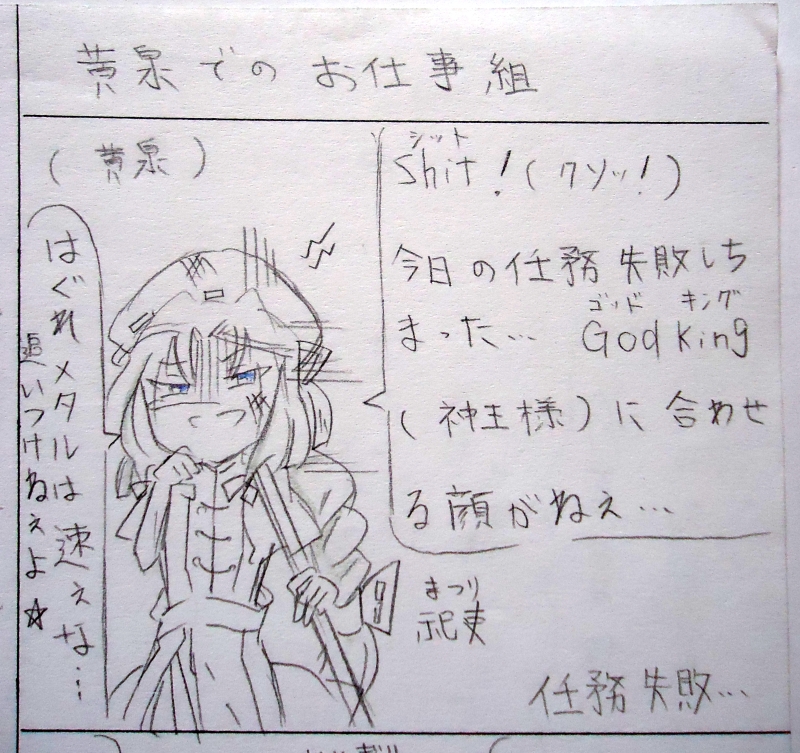 黄泉でのお仕事組
(黄泉)
シット
Shit!(クソッ!)
今日の任務失敗しち
ゴッド キング
まった… God King
(神王様)に合わせ
る顔がねぇ…
はぐれメタルは速ぇな…
追いつけねぇよ☆
まつり
祀吏
任務失敗…